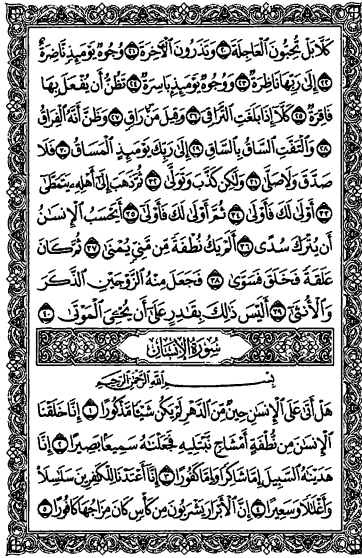 كَلَّا بَلْ تُحِبُّونَ ٱلْعَاجِلَةَ ٢٠ وَتَذَرُونَ ٱلْءَاخِرَةَ ٢١ وُجُوهٌ يَوْمَئِذٍ نَّاضِرَةٌ
٢٢ إِلَىٰ رَبِّهَا نَاظِرَةٌ ٢٣ وَوُجُوهٌ يَوْمَئِذٍۭ بَاسِرَةٌ ٢٤ تَظُنُّ أَن يُفْعَلَ بِهَا
فَاقِرَةٌ ٢٥ كَلَّآ إِذَا بَلَغَتِ ٱلتَّرَاقِىَ ٢٦ وَقِيلَ مَنْ ۜ رَاقٍ ٢٧ وَظَنَّ أَنَّهُ ٱلْفِرَاقُ
٢٨ وَٱلْتَفَّتِ ٱلسَّاقُ بِٱلسَّاقِ ٢٩ إِلَىٰ رَبِّكَ يَوْمَئِذٍ ٱلْمَسَاقُ ٣٠ فَلَا
صَدَّقَ وَلَا صَلَّىٰ ٣١ وَلَٰكِن كَذَّبَ وَتَوَلَّىٰ ٣٢ ثُمَّ ذَهَبَ إِلَىٰٓ أَهْلِهِۦ يَتَمَطَّىٰٓ
٣٣ أَوْلَىٰ لَكَ فَأَوْلَىٰ ٣٤ ثُمَّ أَوْلَىٰ لَكَ فَأَوْلَىٰٓ ٣٥ أَيَحْسَبُ ٱلْإِنسَٰنُ
أَن يُتْرَكَ سُدًى ٣٦ أَلَمْ يَكُ نُطْفَةً مِّن مَّنِىٍّ يُمْنَىٰ ٣٧ ثُمَّ كَانَ
عَلَقَةً فَخَلَقَ فَسَوَّىٰ ٣٨ فَجَعَلَ مِنْهُ ٱلزَّوْجَيْنِ ٱلذَّكَرَ
وَٱلْأُنثَىٰٓ ٣٩ أَلَيْسَ ذَٰلِكَ بِقَٰدِرٍ عَلَىٰٓ أَن يُحْـِۧىَ ٱلْمَوْتَىٰ ٤٠
سُورَةُ الإِنسَانِ
بِسْمِ ٱللَّهِ ٱلرَّحْمَٰنِ ٱلرَّحِيمِ
هَلْ أَتَىٰ عَلَى ٱلْإِنسَٰنِ حِينٌ مِّنَ ٱلدَّهْرِ لَمْ يَكُن شَيْـًٔا مَّذْكُورًا ١ إِنَّا خَلَقْنَا
ٱلْإِنسَٰنَ مِن نُّطْفَةٍ أَمْشَاجٍ نَّبْتَلِيهِ فَجَعَلْنَٰهُ سَمِيعًۢا بَصِيرًا ٢ إِنَّا
هَدَيْنَٰهُ ٱلسَّبِيلَ إِمَّا شَاكِرًا وَإِمَّا كَفُورًا ٣ إِنَّآ أَعْتَدْنَا لِلْكَٰفِرِينَ سَلَٰسِلَا۟
وَأَغْلَٰلًا وَسَعِيرًا ٤ إِنَّ ٱلْأَبْرَارَ يَشْرَبُونَ مِن كَأْسٍ كَانَ مِزَاجُهَا كَافُورًا ٥